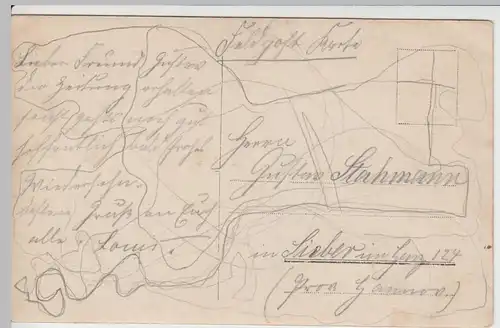 Feldpost Karte
Lieber Freund Gustav
die Zeitung erhalten
geht es mir gut
hoffentlich
Wiedersehn
Gruß an Euch
alle. Louis.
Herrn
Gustav Stahmann
in Sieber im Harz 124
(Prov Hannov.)